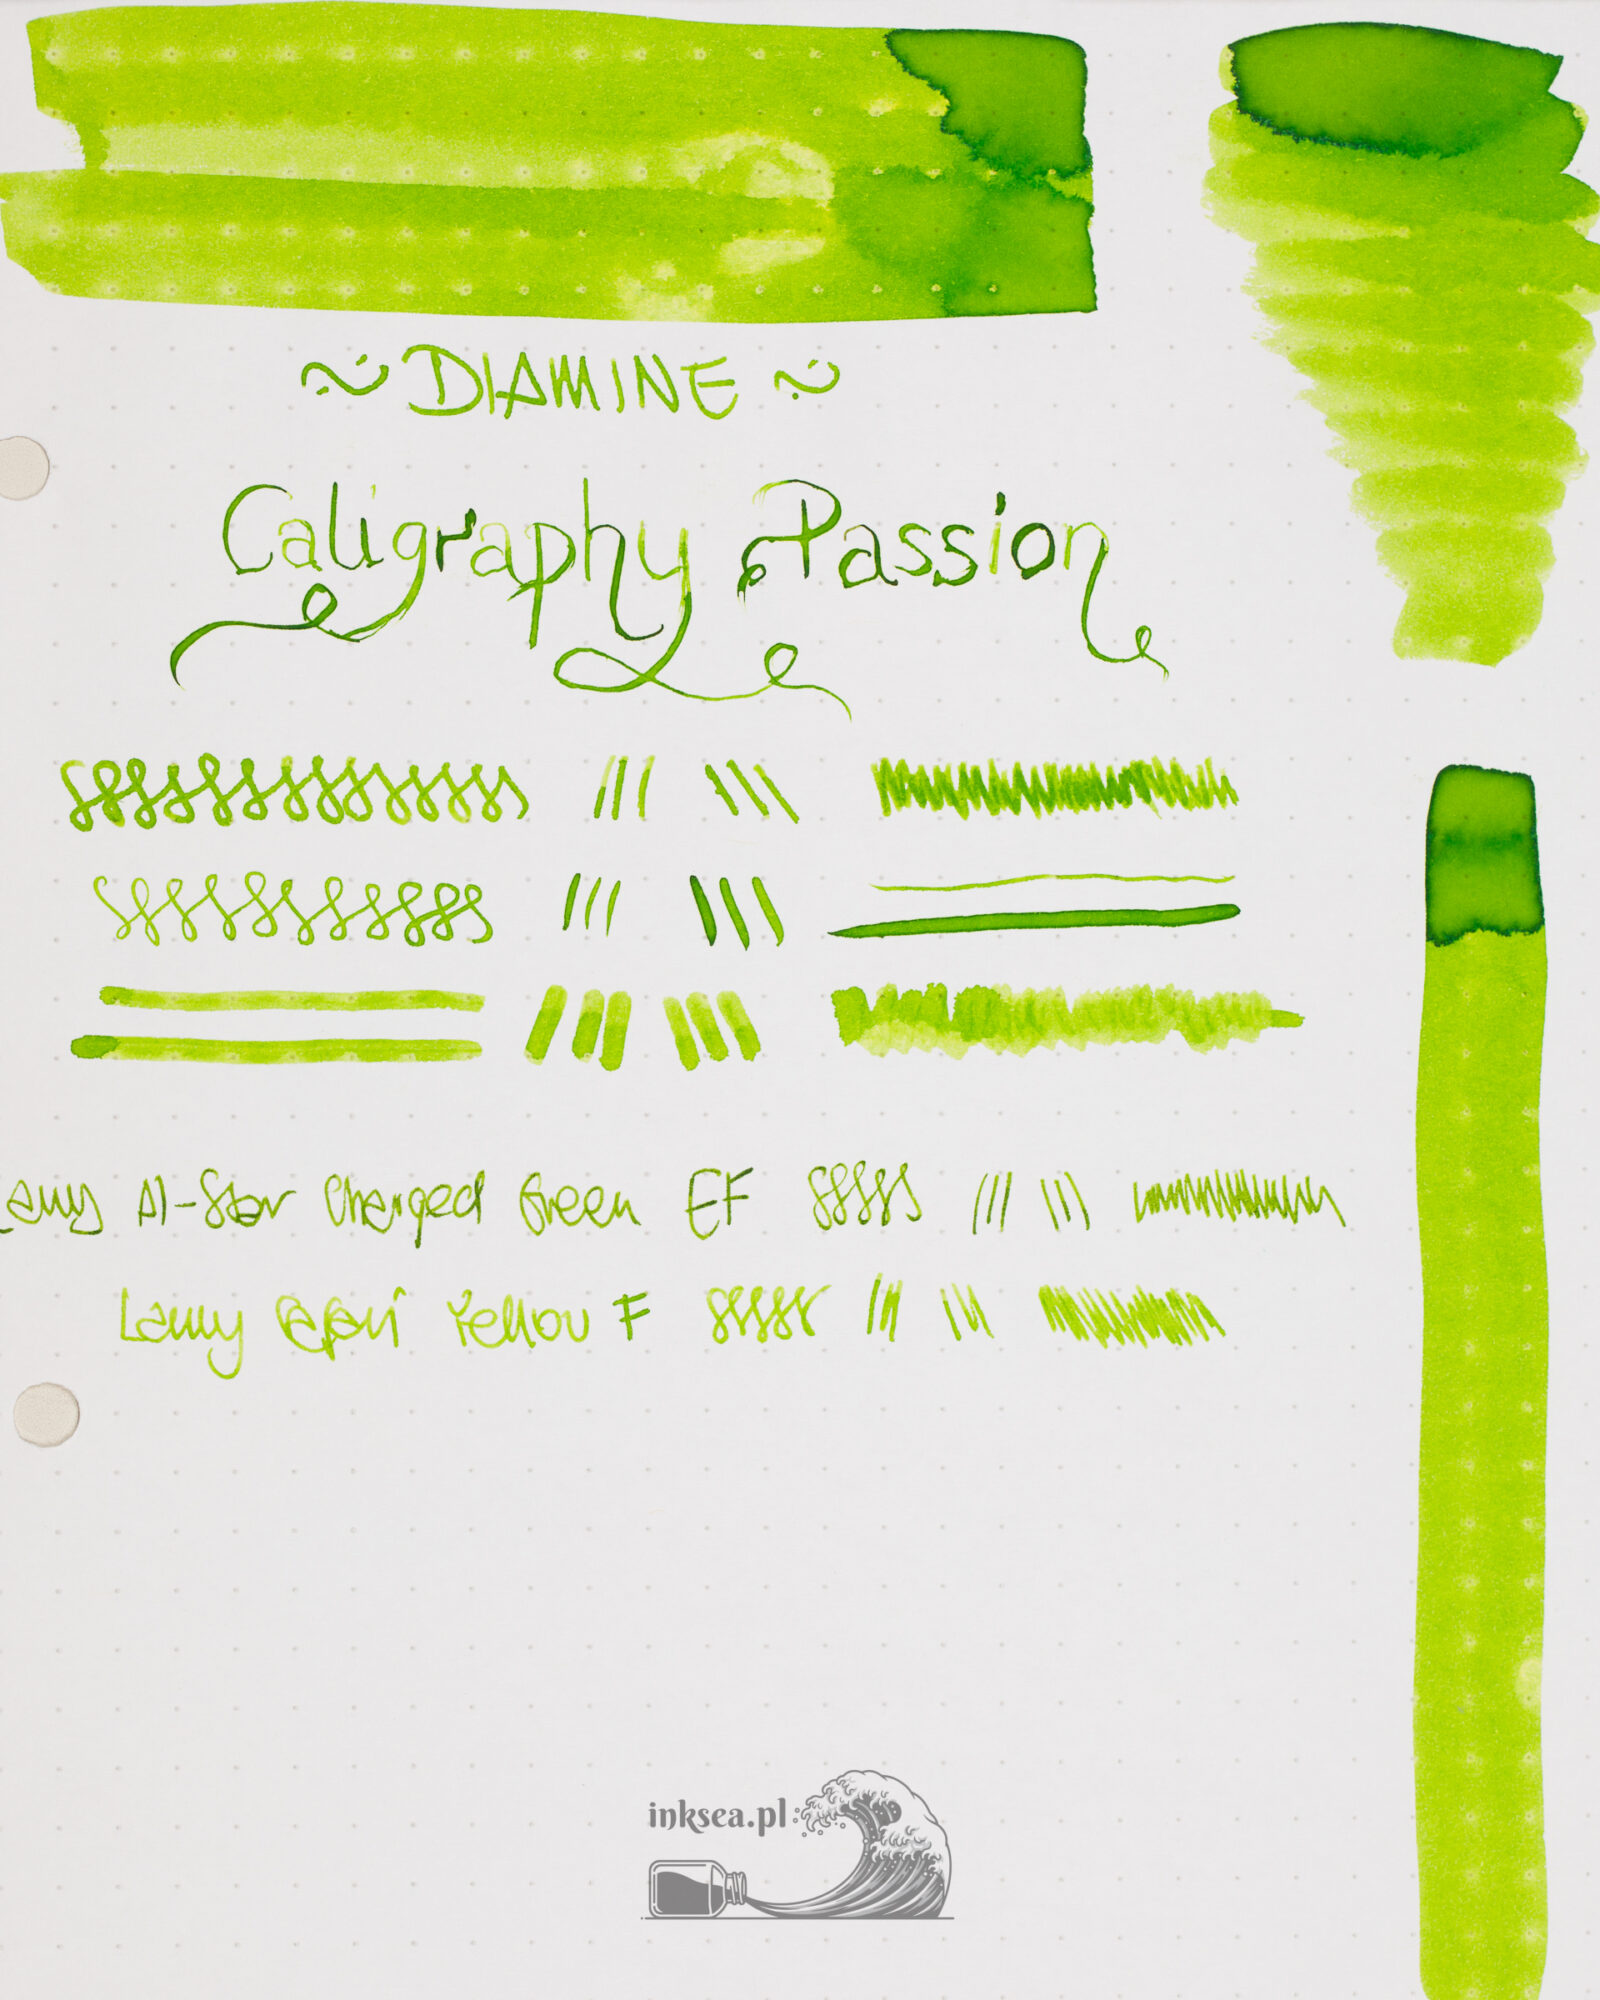 ~ DIAMINE ~
Caligraphy Passion
Lamy Al-Star Charged Green EF
Lamy Safari Yellow F
inksea.pl